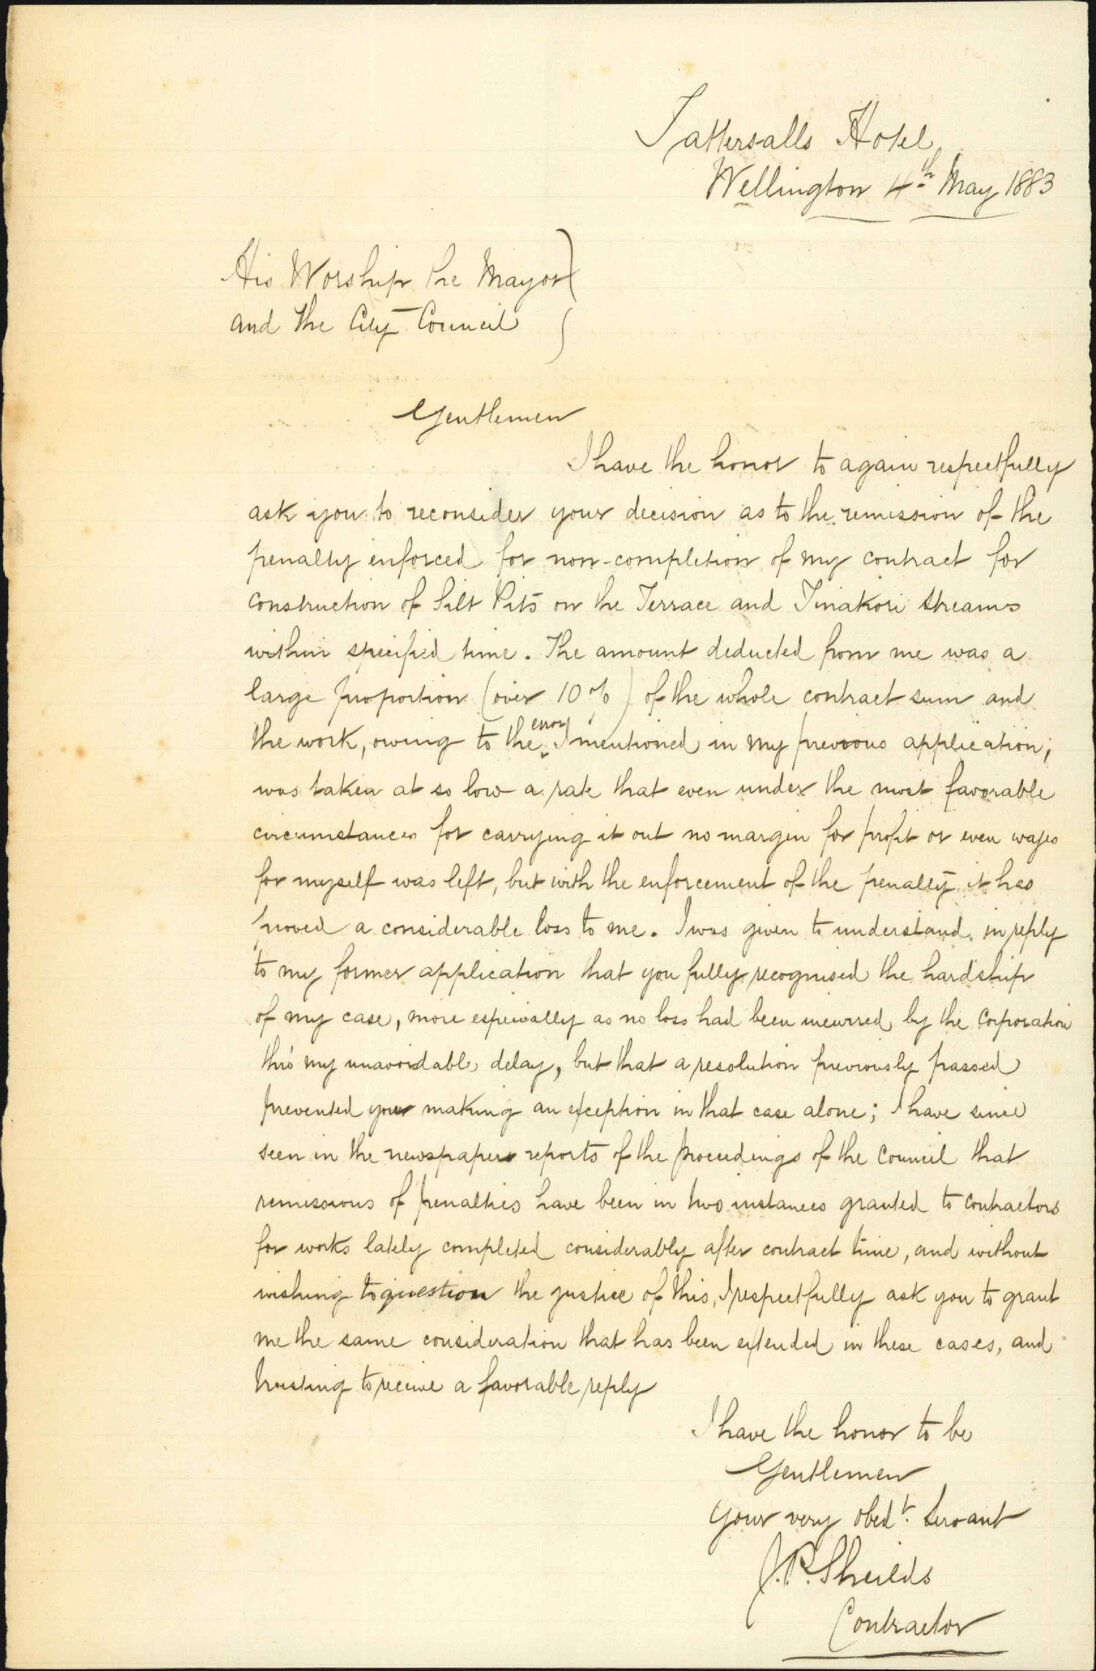 Tattersalls Hotel
Wellington 4th May 1883
His Worship the Mayor
and the City Council
Gentlemen
I have the honor to again respectfully
ask you to reconsider your decision as to the remission of the
penalty enforced for non-completion of my contract for
construction of Silt Pits on the Terrace and Tinakori Streams
within specified time. The amount deducted from me was a
large proportion (over 10%) of the whole contract sum and
the work, owing to the error I mentioned in my previous application,
was taken at so low a rate that even under the most favorable
circumstances for carrying it out no margin for profit or even wages
for myself was left, but with the enforcement of the penalty it has
proved a considerable loss to me. I was given to understand in reply
to my former application that you fully recognised the hardship
of my case, more especially as no loss had been incurred by the Corporation
thro' my unavoidable delay, but that a resolution previously passed
prevented your making an exception in that case alone; I have since
seen in the newspaper reports of the proceedings of the Council that
remissions of penalties have been in two instances granted to contractors
for works lately completed considerably after contract time, and without
wishing to question the justice of this, I respectfully ask you to grant
me the same consideration that has been extended in these cases, and
trusting to receive a favorable reply
I have the honor to be
Gentlemen
Your very obedt. Servant
J. P. Sheilds
Contractor